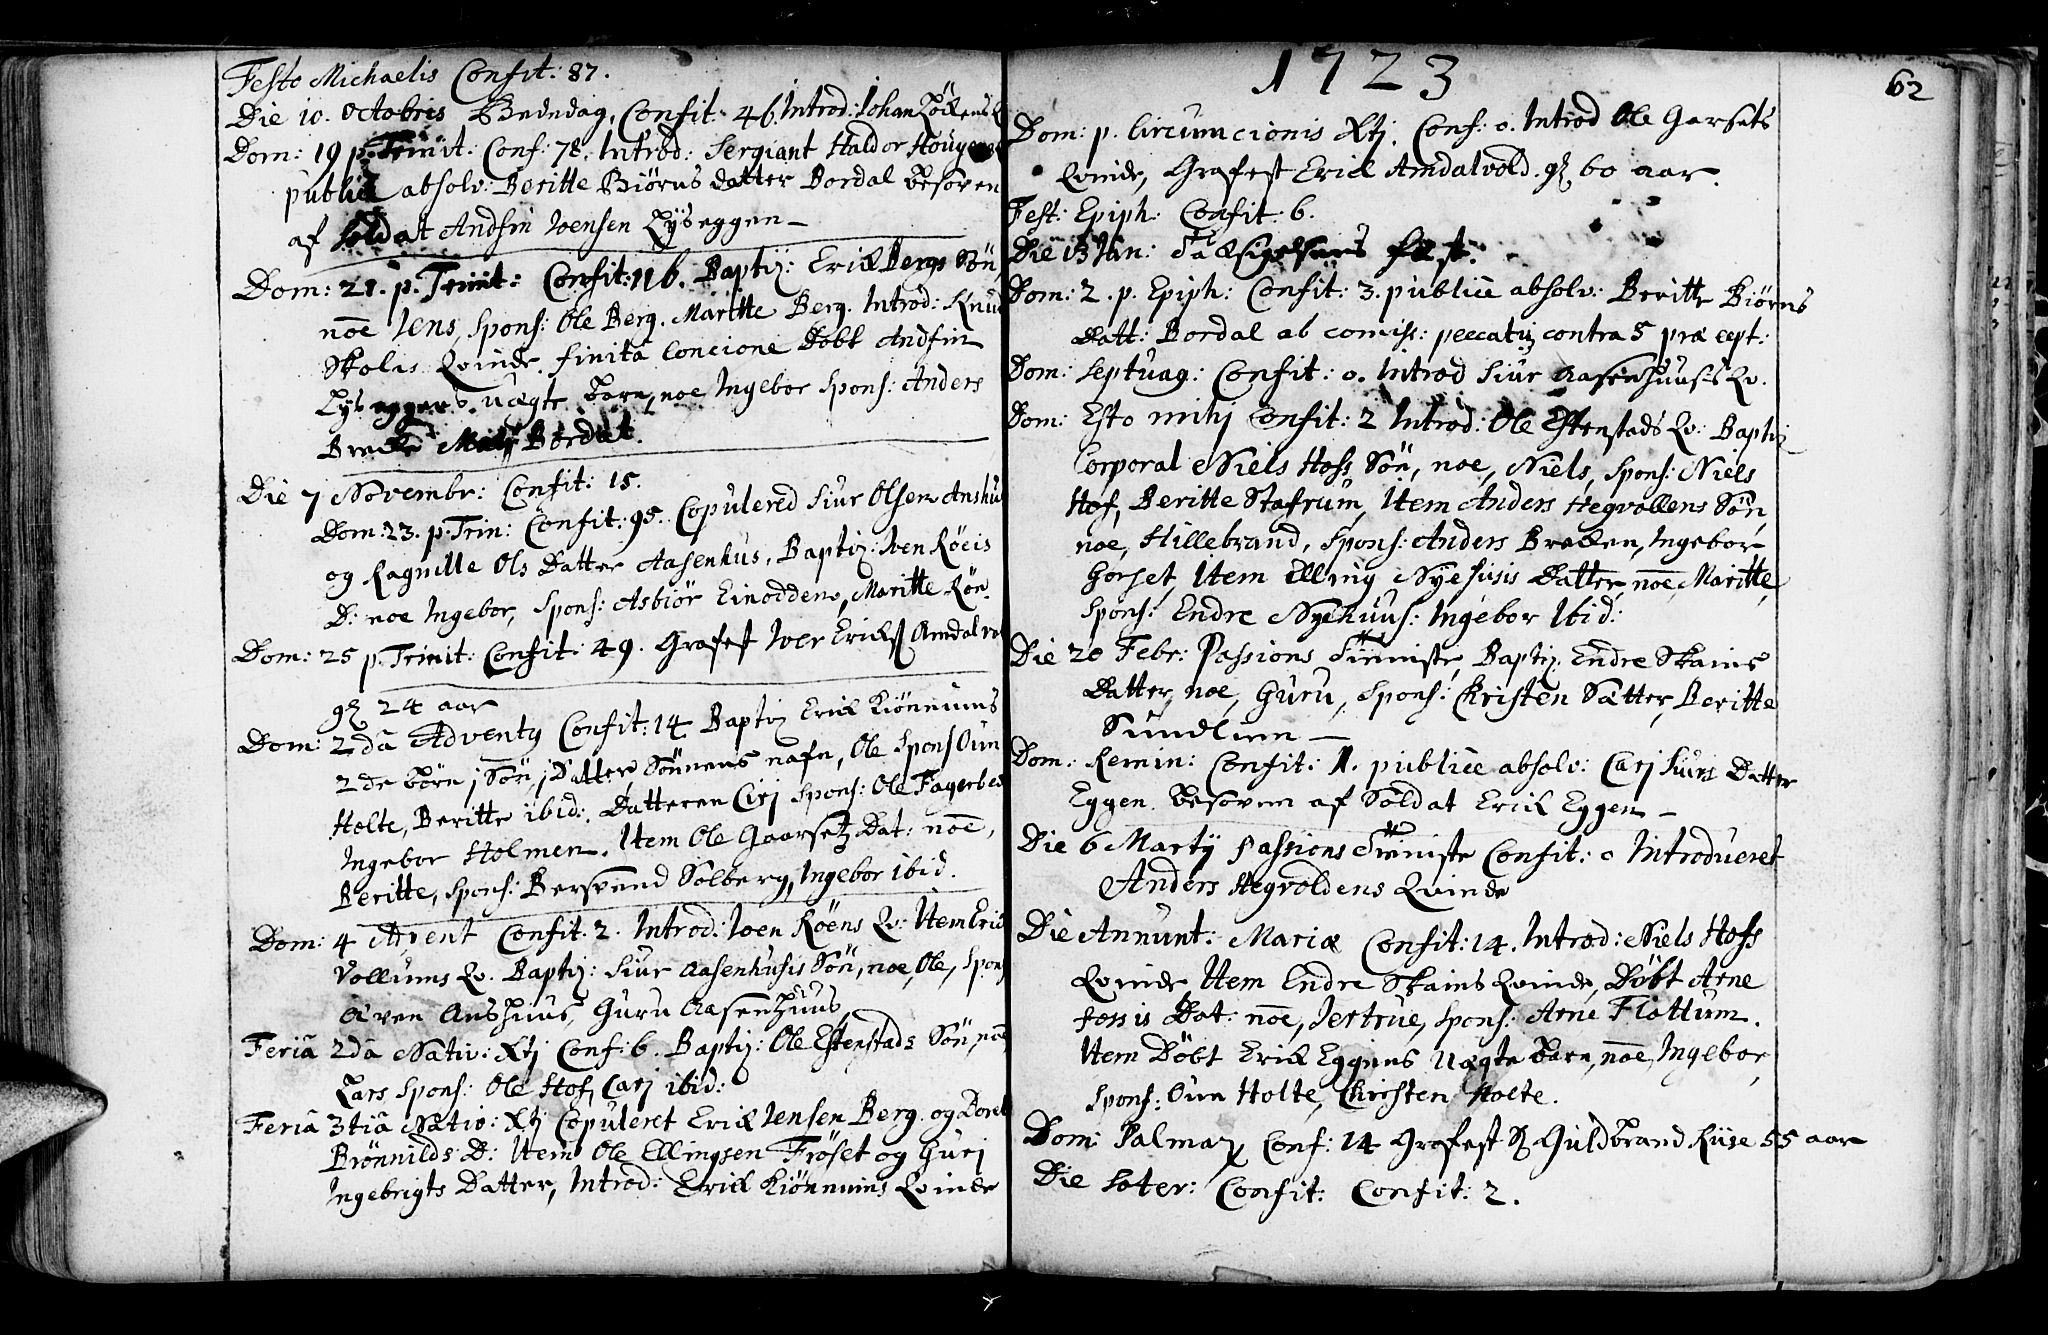 Festo Michaelis Confit: 87.
Die 10. Octobris Bededag, Confit: 46. Introd: Johan
Dom: 19 p. Trinit: Conf: 78. Introd: Sergiant Haldor
public absolv: Beritte Biörns datter Bordal besoven
af Soldat Andfin Joensen Lyseggen –
Dom: 21. p. Trinit: Confit: 116. Baptiz: Erick Bergs Sön
noe Jens, Spons: Ole Berg. Maritte Berg. Introd: Knud
Skolis Qvinde. finitâ Concione Döbt Andfin
Lyseggens uægte barn, noe Ingebor Spons: Anders
Brecke Bordal.
Die 7 Novembr: Confit: 15.
Dom: 23. p. Trin: Confit: 95. Copulered Siur Olsen
og Ragnille Ols Datter Aasenhus, Baptiz: Iven Röeis
D: noe Ingebor, Spons: Asbiör Einodden, Maritte Röe.
Dom: 25 p. Trinit: Confit: 49. Grafest Iver Ericks
gl 24 aar
Dom: 2dâ Adventy Confit: 14 Baptiz Erick Kiönnums
2de börn j Sön, j Datter Sönnens nafn, Ole Spons Oun
Holte, Beritte ibid: Datteren Cirj Spons: Ole
Ingebor Holmen. Item Ole Gaarsetz Dat: noē,
Beritte, Spons: Bersvend Solberg, Ingebor ibid.
Dom: 4 Advent Confit. 2. Introd: Joen Röens Qv: Item Erick
Vollums Qv. Baptiz: Siur Aasenhusis Sön, noe, Ole, Spons
Guru Aasenhuus
Feriâ 2dâ Nativ: Xtj Conf: 6. Baptiz: Ole Estenstads Sön, noē
Lars Spons: Ole Hof, Carj ibid:
Feriâ 3tiâ Nativ: Xtj Copuleret Erick Jensen Berg. og
Brönnilds D: Item Ole Ellingsen Fröset og Gurj
Ingebrigts Datter, Introd: Erick Kiönnums Qvinde
1723
62
Dom: p. Circumcionis Xtj. Conf: 0. Introd Ole Garsets
Qvinde, Grafest Erick Amdalvold. gl 60 aar.
Fest: Epiph: Confit: 6.
Die 13 Jan: Tacksigelsens fest.
Dom: 2. p. Epiph: Confit: 3. publicè absolv: Beritte Biörns
Datt: Bordal ab comiss: peccatu contra 5 præcept:
Dom: Septuag: Confit: 0. Introd Siur Aasenhuusis Qv.
Dom: Esto mihj Confit: 2 Introd: Ole Estenstads Qv: Baptiz
Corporal Niels Hofs Sön, noe, Niels, Spons: Niels
Hof, Beritte Stafrum, Item Anders Hegvollens Sön
noe, Hillebrand, Spons: Anders Brecken, Ingebor
Gorset, Item Elling Nyehusis Datter, noē, Maritte,
Spons: Endre Nyehuus: Ingebor Ibid:
Die 20 Febr: Passions Tienniste, Baptiz. Endre Skains
Datter, noe, Guru, Spons: Christen Sætter, Beritte
Sundlien –
Dom: Remin: Confit: 11. publicè absolv: Carj Siurs Datter
Eggen besoven af Soldat Erick Eggen –
Die 6 Martij Passions Tienniste Confit: 0 Introduceret
Anders Hegvoldens Qvinde
Die Annunt: Mariæ Confit: 14. Introd: Niels Hofs
Qvinde, Item Endre Skains Qvinde, Döbt Arne
Fossis Dat: noē, Jertrue, Spons: Arne Flottum.
Item Döbt Erick Eggens Uægte barn, noē, Ingebor,
Spons: Oun Holte, Christen Holte.
Dom: Palmar Conf: 14 Grafest Guldbrand Riise 55 aar
Die Soter: Confit: Confit: 2.